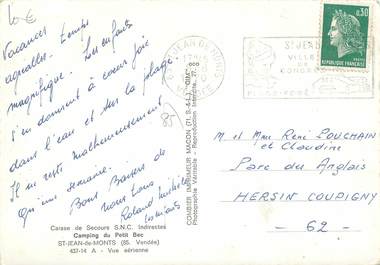 6€
Vacances
agréables. Temps
magnifique. Les enfants
s'en donnent à cœur joie
dans l'eau et sur la plage.
Il ne reste malheureusement
qu'une semaine.
Bons Baisers de
nous tous
Roland Michèle
85
Carase de Secours S.N.C. Indirectes
Camping du Petit Bec
ST-JEAN-de-MONTS (85. Vendée)
437-14 A - Vue aérienne
COMBIER IMPRIMEUR MACON (71. S.-&-L.) "CIM"
Photographie Véritable - Reproduction Interdite
ST-JEAN-DE-MONTS
VENDEE
ST JEAN
VILLE
DE
CONGRÈS
0,30
REPUBLIQUE FRANÇAISE
POSTES
M et Mme René LOUCHAIN
et Claudine
Parc des Anglais
HERSIN COUPIGNY
- 62 -